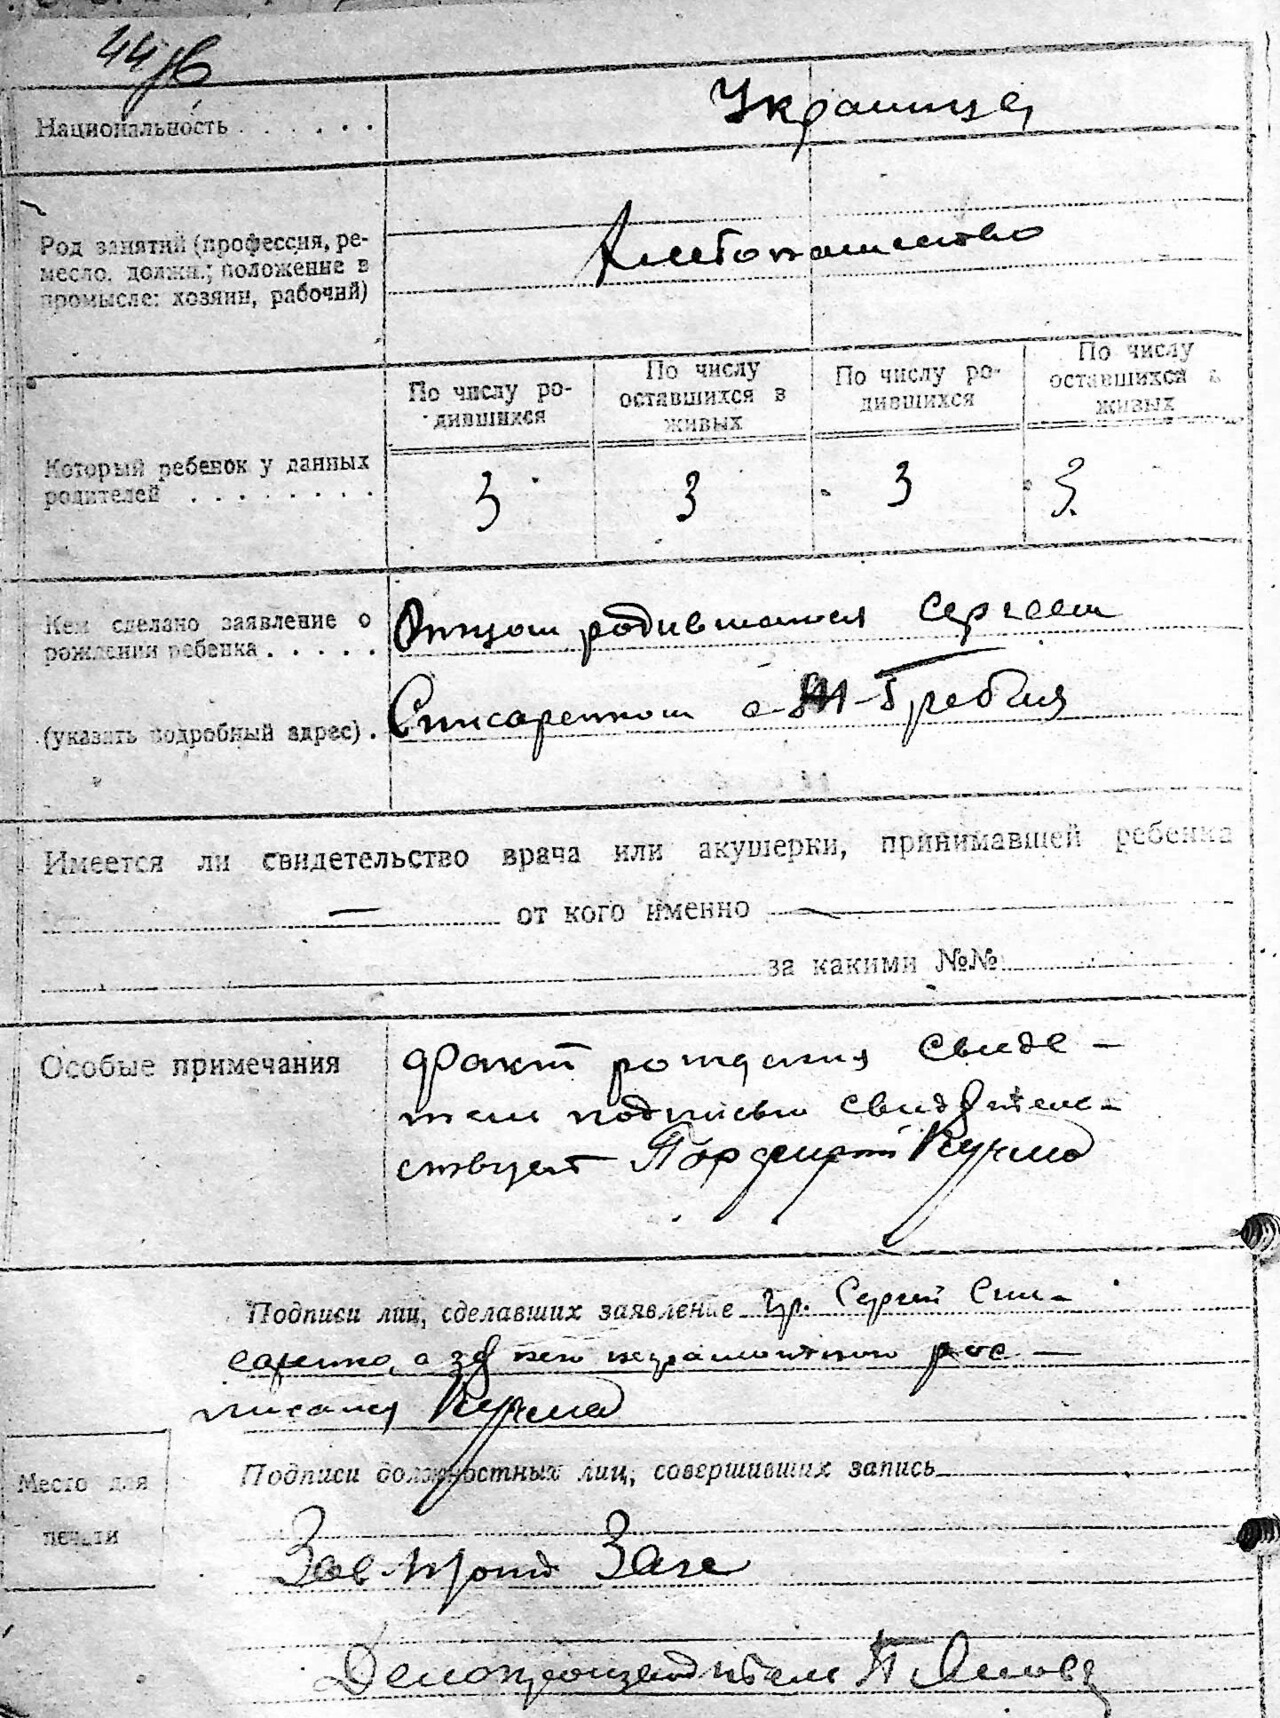 44
Национальность . . . . . .
Украинцы
Род занятий (профессия, ре-
месло, должн.; положение в
промысле: хозяин, рабочий)
Хлебопашество
По числу ро-
дившихся
По числу
оставшихся в
живых
По числу ро-
дившихся
По числу
оставшихся в
живых
Который ребенок у данных
родителей . . . . . . . .
3 3 3 3
Кем сделано заявление о
рождении ребенка . . . . .
Отцом родившагося Сергеем
(указать подробный адрес) .
Слисаренком с. М-Гребля
Имеется ли свидетельство врача или акушерки, принимавшей ребенка
— от кого именно —
за какими №№
Особые примечания
Факт рождения свиде-
тель подписью свидетель-
ствует Порфирий Кучма
Подписи лиц, сделавших заявление гр. Сергей Сли-
саренко, а за него неграмотного рос-
писался Кучма
Подписи должностных лиц, совершивших запись
Место для
печати
Зав. Загс
Делопроизводитель П.